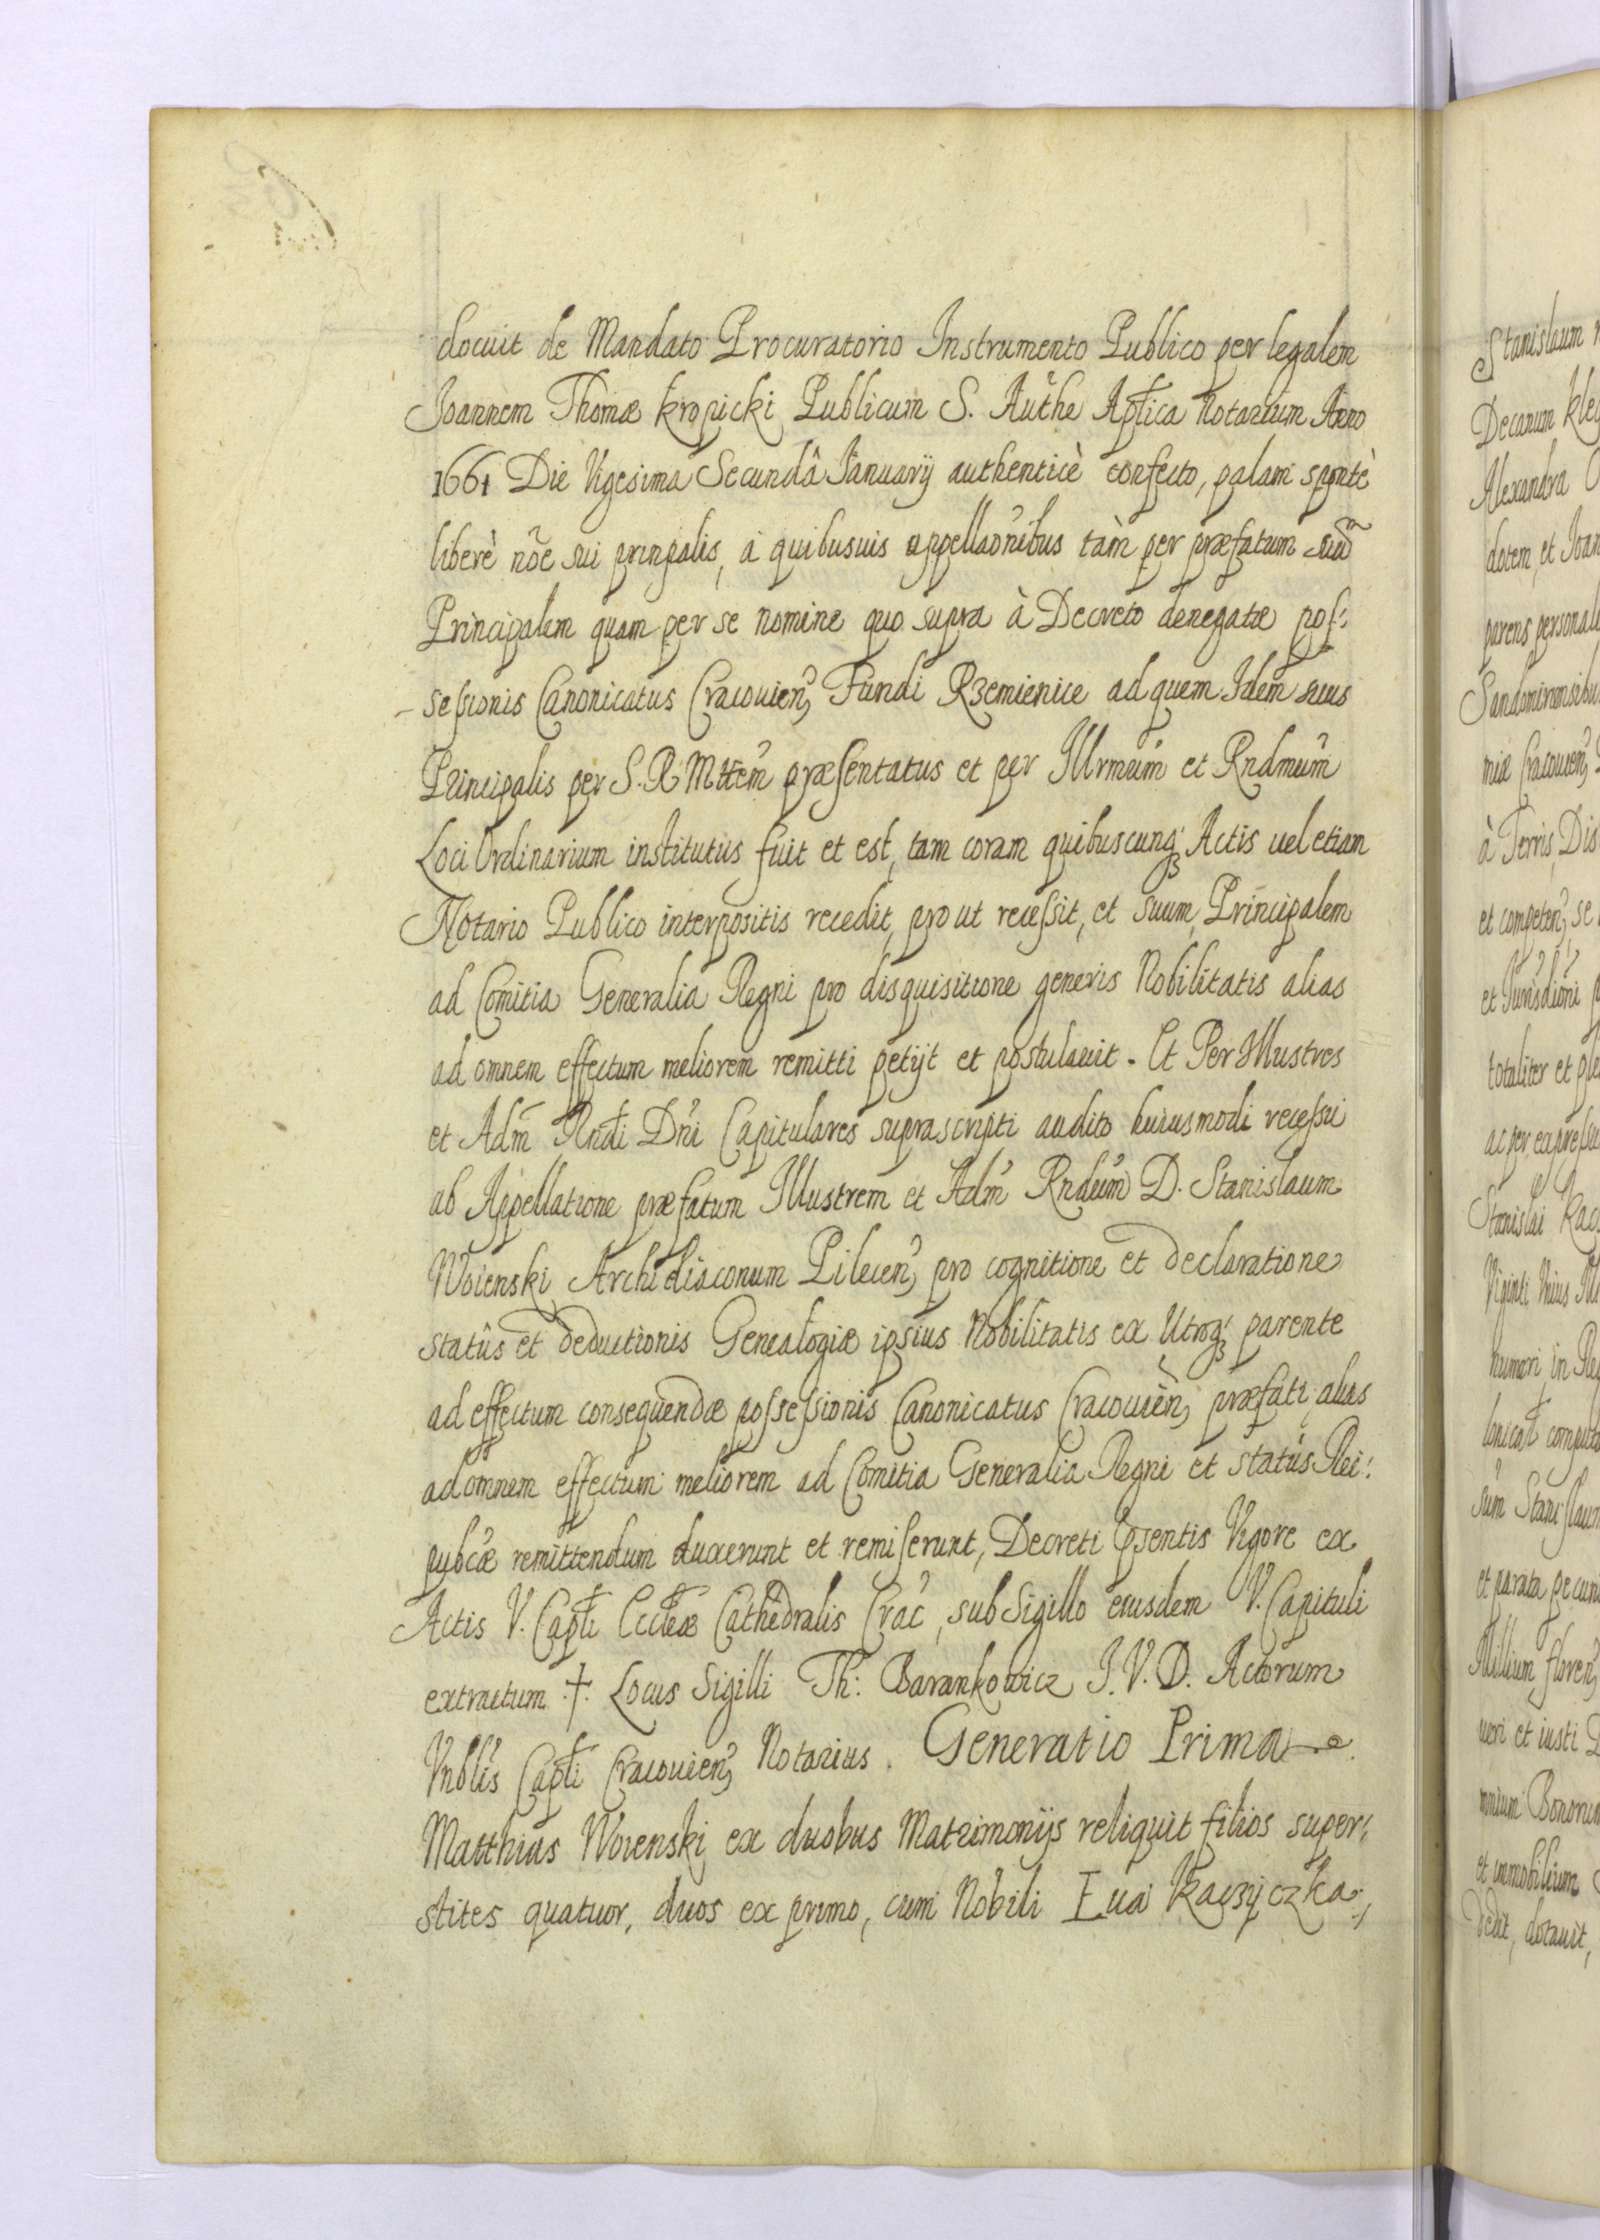 docuit de Mandato Procuratorio Instrumento Publico per legalem
Joannem Thomæ Kropicki Publicum S. Authe Aptica Notarium Anno
1661 Die Vigesima Secundâ Januarij authenticè confecto, palam spontè
liberè nõe sui prinpalis, a quibusuis appellaõnibus tàm per præfatum suũ
Principalem quam per se nomine quo supra à Decreto denegatæ pos:
sessionis Canonicatus Cracouien, Fundi Rzemienice ad quem Idem suus
Principalis per S. R. Mttem præsentatus et per Illrmum et Rndmum
Loci Ordinarium institutus fuit et est, tam coram quibuscunq; Actis uel etiam
Notario Publico interpositis recedit, prout recessit, et suum Principalem
ad Comitia Generalia Regni pro disquisitione generis Nobilitatis alias
ad omnem effectum meliorem remitti petijt et postulauit. Et Per Illustres
et Adm Rndi Dni Capitulares suprascripti audito huiusmodi recessu
ab Appellatione præfatum Illustrem et Adm Rndum D. Stanislaum
Woienski Archidiaconum Pilecen, pro cognitione et declaratione
statûs et deductionis Genealogiæ ipsius Nobilitatis ex Utroq; parente
ad effectum consequendæ possessionis Canonicatus Cracouien, præfati, alias
ad omnem effectum meliorem ad Comitia Generalia Regni et status Rei:
pubcæ remittendum duxerunt et remiserunt, Decreti psentis Vigore ex
Actis V. Capli Eccleæ Cathedralis Crac, sub Sigillo eiusdem V. Capituli
extractum .†. Locus Sigilli Th: Barankowicz J. V. D. Actorum
Vnblis Capli Cracouien, Notarius. Generatio Prima
Matthias Woienski ex duobus Matrimonijs reliquit filios super:
stites quatuor, duos ex primo, cum Nobili Eua Kaczyczka,
Stanislaum
Decanum
Alexandra
dotem, et Joan
parens personal
Sandomiriensibus
miæ Cracouien,
à Terris, Dis
et competen, se
et Jurisdioni
totaliter et ple
ac per expressu
Stanislai
Viginti Unius
numeri in
lonicat computa
sum Stanislaum
et parata pecun
Millium floren,
ueri et iusti
mnium Bonorum
et immobilium
dedit, dotauit,